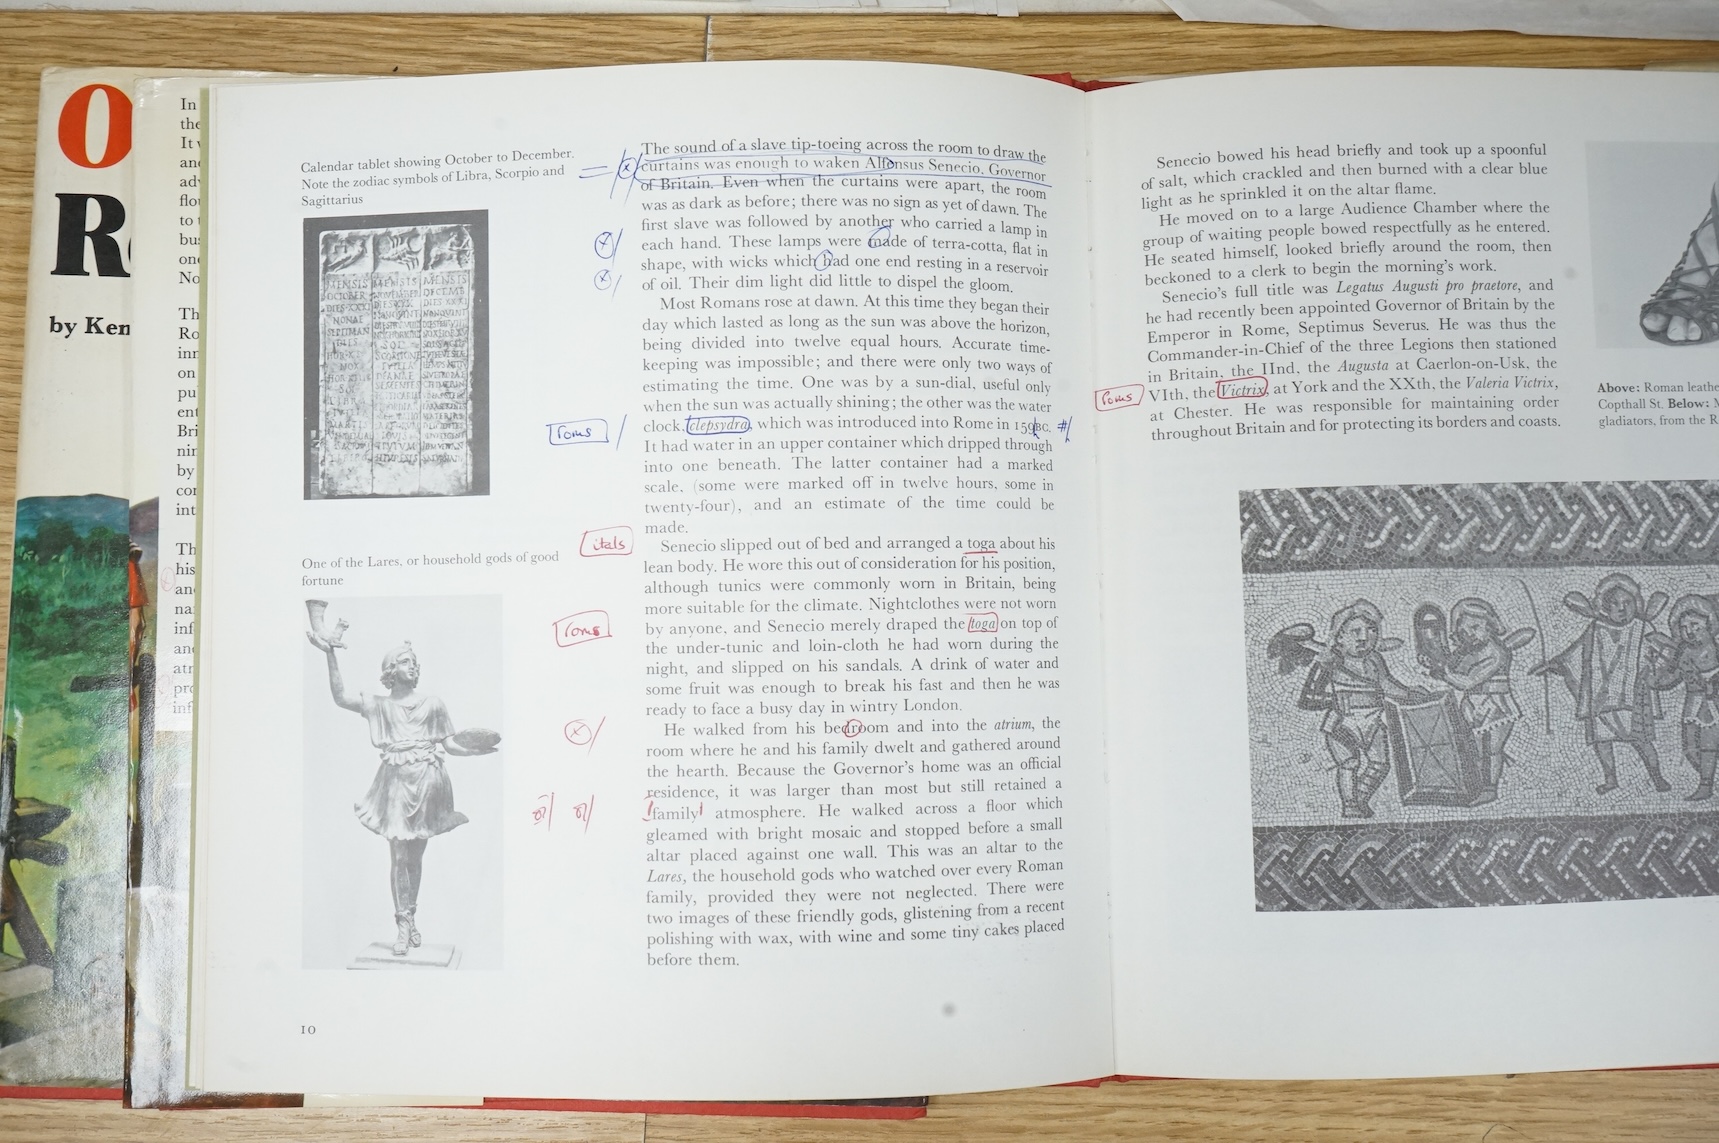 O
R
by Ken
In
the
It
and
adv
flou
to
bus
one
No
Th
Ro
inn
on
pu
ent
Bri
nin
by
cor
int
Th
his
and
nar
inf
and
atr
pro
inf
Calendar tablet showing October to December.
Note the zodiac symbols of Libra, Scorpio and
Sagittarius
MENSIS MENSIS MENSIS
OCTOBER NOVEMBER DECEMB
One of the Lares, or household gods of good
fortune
10
The sound of a slave tip-toeing across the room to draw the
curtains was enough to waken Alfonsus Senecio, Governor
of Britain. Even when the curtains were apart, the room
was as dark as before; there was no sign as yet of dawn. The
first slave was followed by another who carried a lamp in
each hand. These lamps were made of terra-cotta, flat in
shape, with wicks which had one end resting in a reservoir
of oil. Their dim light did little to dispel the gloom.
Most Romans rose at dawn. At this time they began their
day which lasted as long as the sun was above the horizon,
being divided into twelve equal hours. Accurate time-
keeping was impossible; and there were only two ways of
estimating the time. One was by a sun-dial, useful only
when the sun was actually shining; the other was the water
roms
clock, clepsydra, which was introduced into Rome in 159BC. #
It had water in an upper container which dripped through
into one beneath. The latter container had a marked
scale, (some were marked off in twelve hours, some in
twenty-four), and an estimate of the time could be
made.
itals
Senecio slipped out of bed and arranged a toga about his
lean body. He wore this out of consideration for his position,
although tunics were commonly worn in Britain, being
more suitable for the climate. Nightclothes were not worn
roms
by anyone, and Senecio merely draped the toga on top of
the under-tunic and loin-cloth he had worn during the
night, and slipped on his sandals. A drink of water and
some fruit was enough to break his fast and then he was
ready to face a busy day in wintry London.
He walked from his bedroom and into the atrium, the
room where he and his family dwelt and gathered around
the hearth. Because the Governor's home was an official
residence, it was larger than most but still retained a
'family' atmosphere. He walked across a floor which
gleamed with bright mosaic and stopped before a small
altar placed against one wall. This was an altar to the
Lares, the household gods who watched over every Roman
family, provided they were not neglected. There were
two images of these friendly gods, glistening from a recent
polishing with wax, with wine and some tiny cakes placed
before them.
Senecio bowed his head briefly and took up a spoonful
of salt, which crackled and then burned with a clear blue
light as he sprinkled it on the altar flame.
He moved on to a large Audience Chamber where the
group of waiting people bowed respectfully as he entered.
He seated himself, looked briefly around the room, then
beckoned to a clerk to begin the morning's work.
Senecio's full title was Legatus Augusti pro praetore, and
he had recently been appointed Governor of Britain by the
Emperor in Rome, Septimus Severus. He was thus the
Commander-in-Chief of the three Legions then stationed
in Britain, the IInd, the Augusta at Caerlon-on-Usk, the
roms
VIth, the Victrix, at York and the XXth, the Valeria Victrix,
at Chester. He was responsible for maintaining order
throughout Britain and for protecting its borders and coasts.
Above: Roman leathe
Copthall St. Below: M
gladiators, from the R